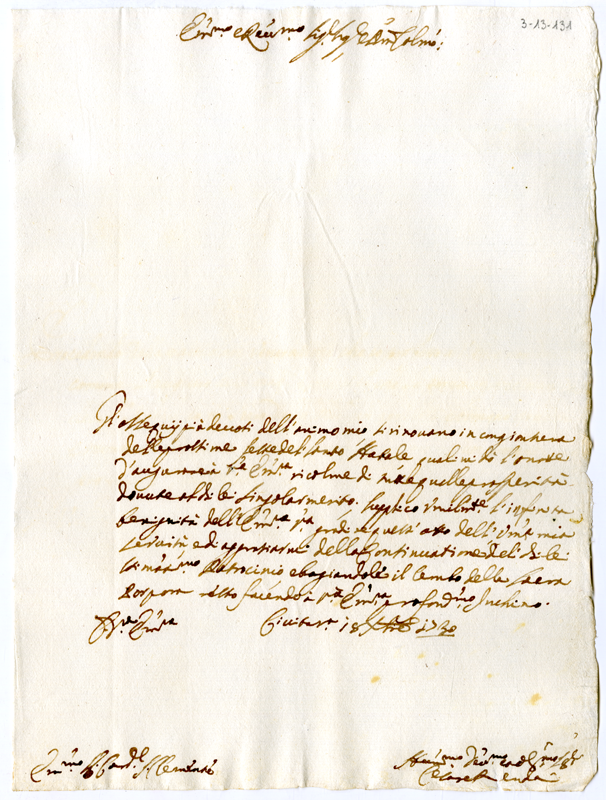 3-13-131
Em.mo e Reu.mo Sig.r Sig.r e P.ron Colmo:
Gl'ossequij più deuoti dell'animo mio si rinouano in congiontura
delle prossime feste del Santo Natale quali mi dà l'onore
d'augurare à V.ra Em.za ricolme di tutte quelle prosperità
douute al di lei singolar merito. Supplico umilm.te l'infinita
benignità dell'Em.za V.ra gradire quest'atto dell'umil.ma mia
seruitù e di approssiarmi della continuatione del di lei
stimat.mo Patrocinio e bagiandole il lembo della Sacra
Porpora resto facendo à V.ra Em.za profond.mo Inchino.
Di V.ra Em.za
Ciuitau.a 18 1730
Em.mo S. Card.l Alemanè
Hu.mo Deu.mo ed Obl.mo Ser.
Cesare